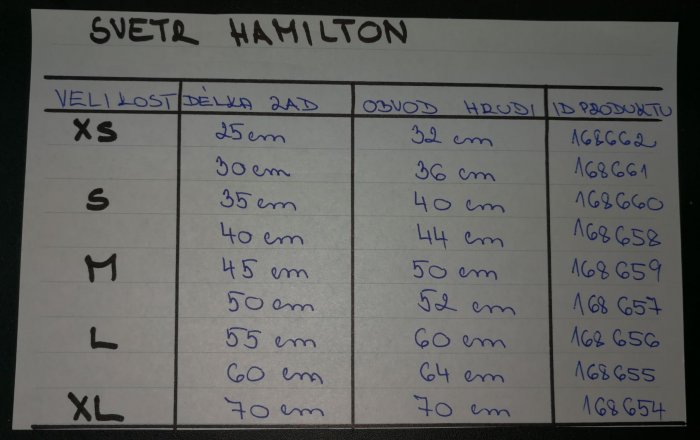 SVETR HAMILTON
VELIKOST DÉLKA ZAD OBVOD HRUDI ID PRODUKTU
XS 25cm 32 cm 168662
30cm 36 cm 168661
S 35cm 40 cm 168660
40 cm 44 cm 168658
M 45 cm 50 cm 168659
50 cm 52 cm 168657
L 55 cm 60 cm 168656
60 cm 64 cm 168655
XL 70 cm 70 cm 168654